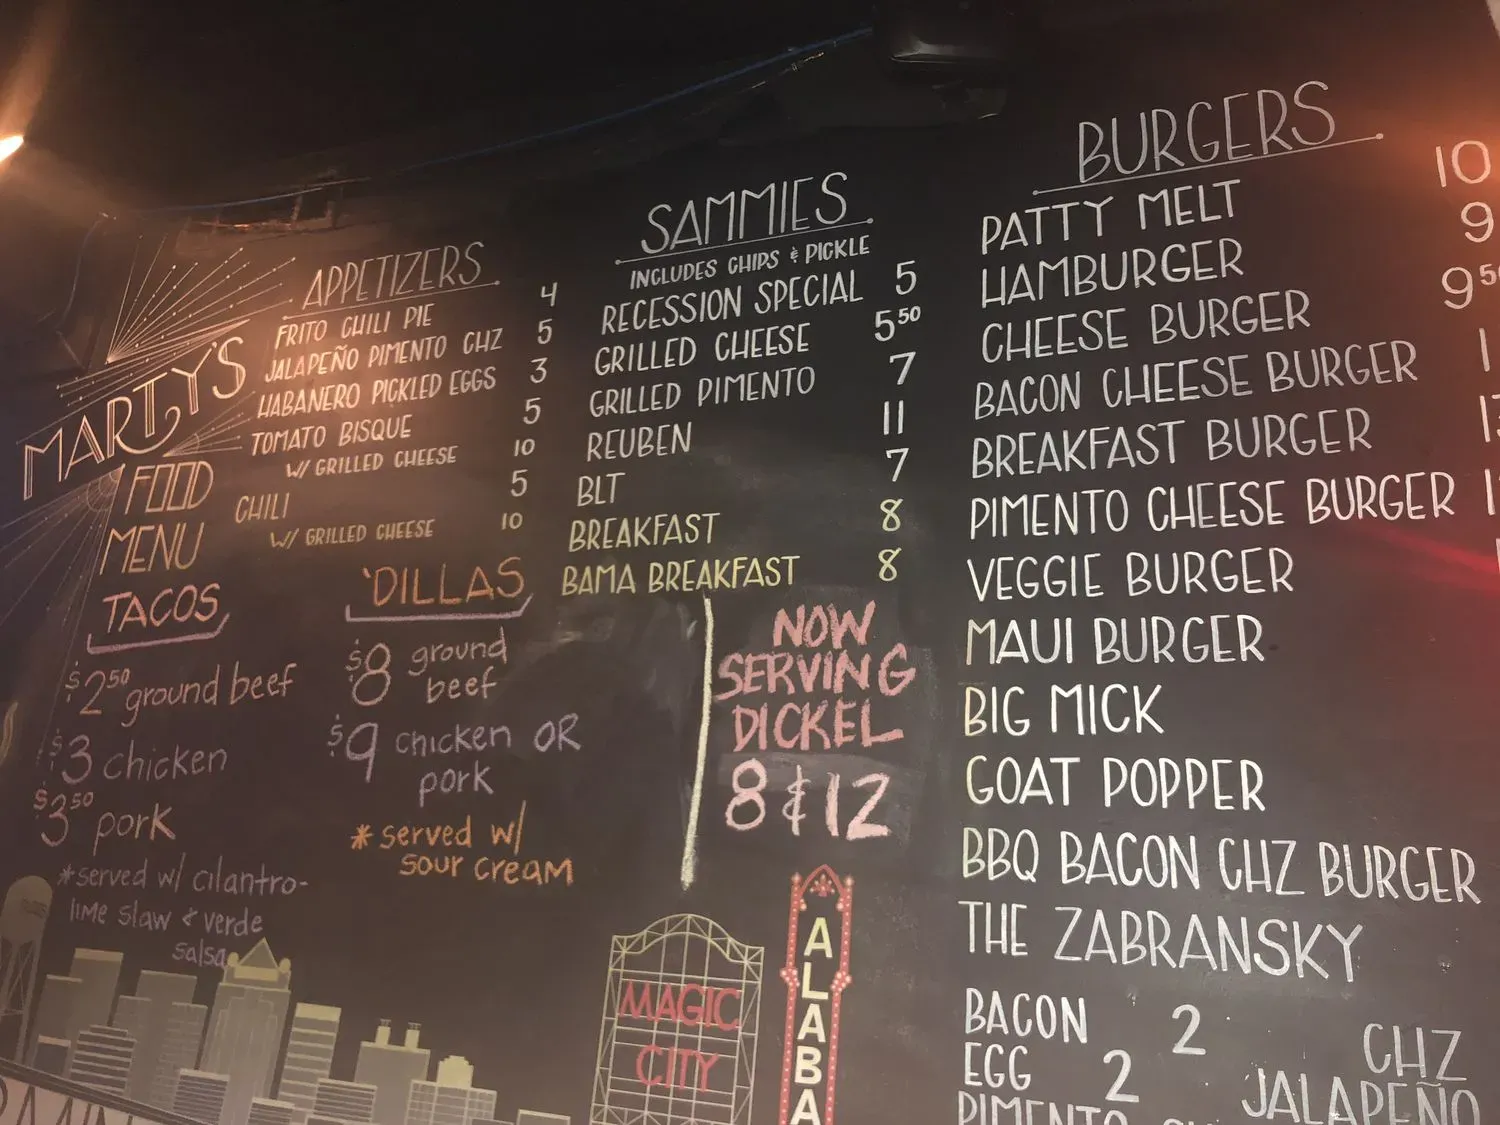 MARTY'S
FOOD
MENU
APPETIZERS
FRITO CHILI PIE 4
JALAPEÑO PIMENTO CHZ 5
HABANERO PICKLED EGGS 3
TOMATO BISQUE 5
W/ GRILLED CHEESE 10
CHILI 5
W/ GRILLED CHEESE 10
TACOS
$2.50 ground beef
$3 chicken
$3.50 pork
*served w/ cilantro-
lime slaw & verde
salsa
'DILLAS
$8 ground
beef
$9 chicken OR
pork
*served w/
sour cream
SAMMIES
INCLUDES CHIPS & PICKLE
RECESSION SPECIAL 5
GRILLED CHEESE 5.50
GRILLED PIMENTO 7
REUBEN 11
BLT 7
BREAKFAST 8
BAMA BREAKFAST 8
NOW
SERVING
DICKEL
8 & 12
MAGIC
CITY
ALABA
BURGERS
PATTY MELT 10
HAMBURGER 9
CHEESE BURGER 9.50
BACON CHEESE BURGER
BREAKFAST BURGER
PIMENTO CHEESE BURGER
VEGGIE BURGER
MAUI BURGER
BIG MICK
GOAT POPPER
BBQ BACON CHZ BURGER
THE ZABRANSKY
BACON 2
EGG 2
PIMENTO
CHZ
JALAPEÑO